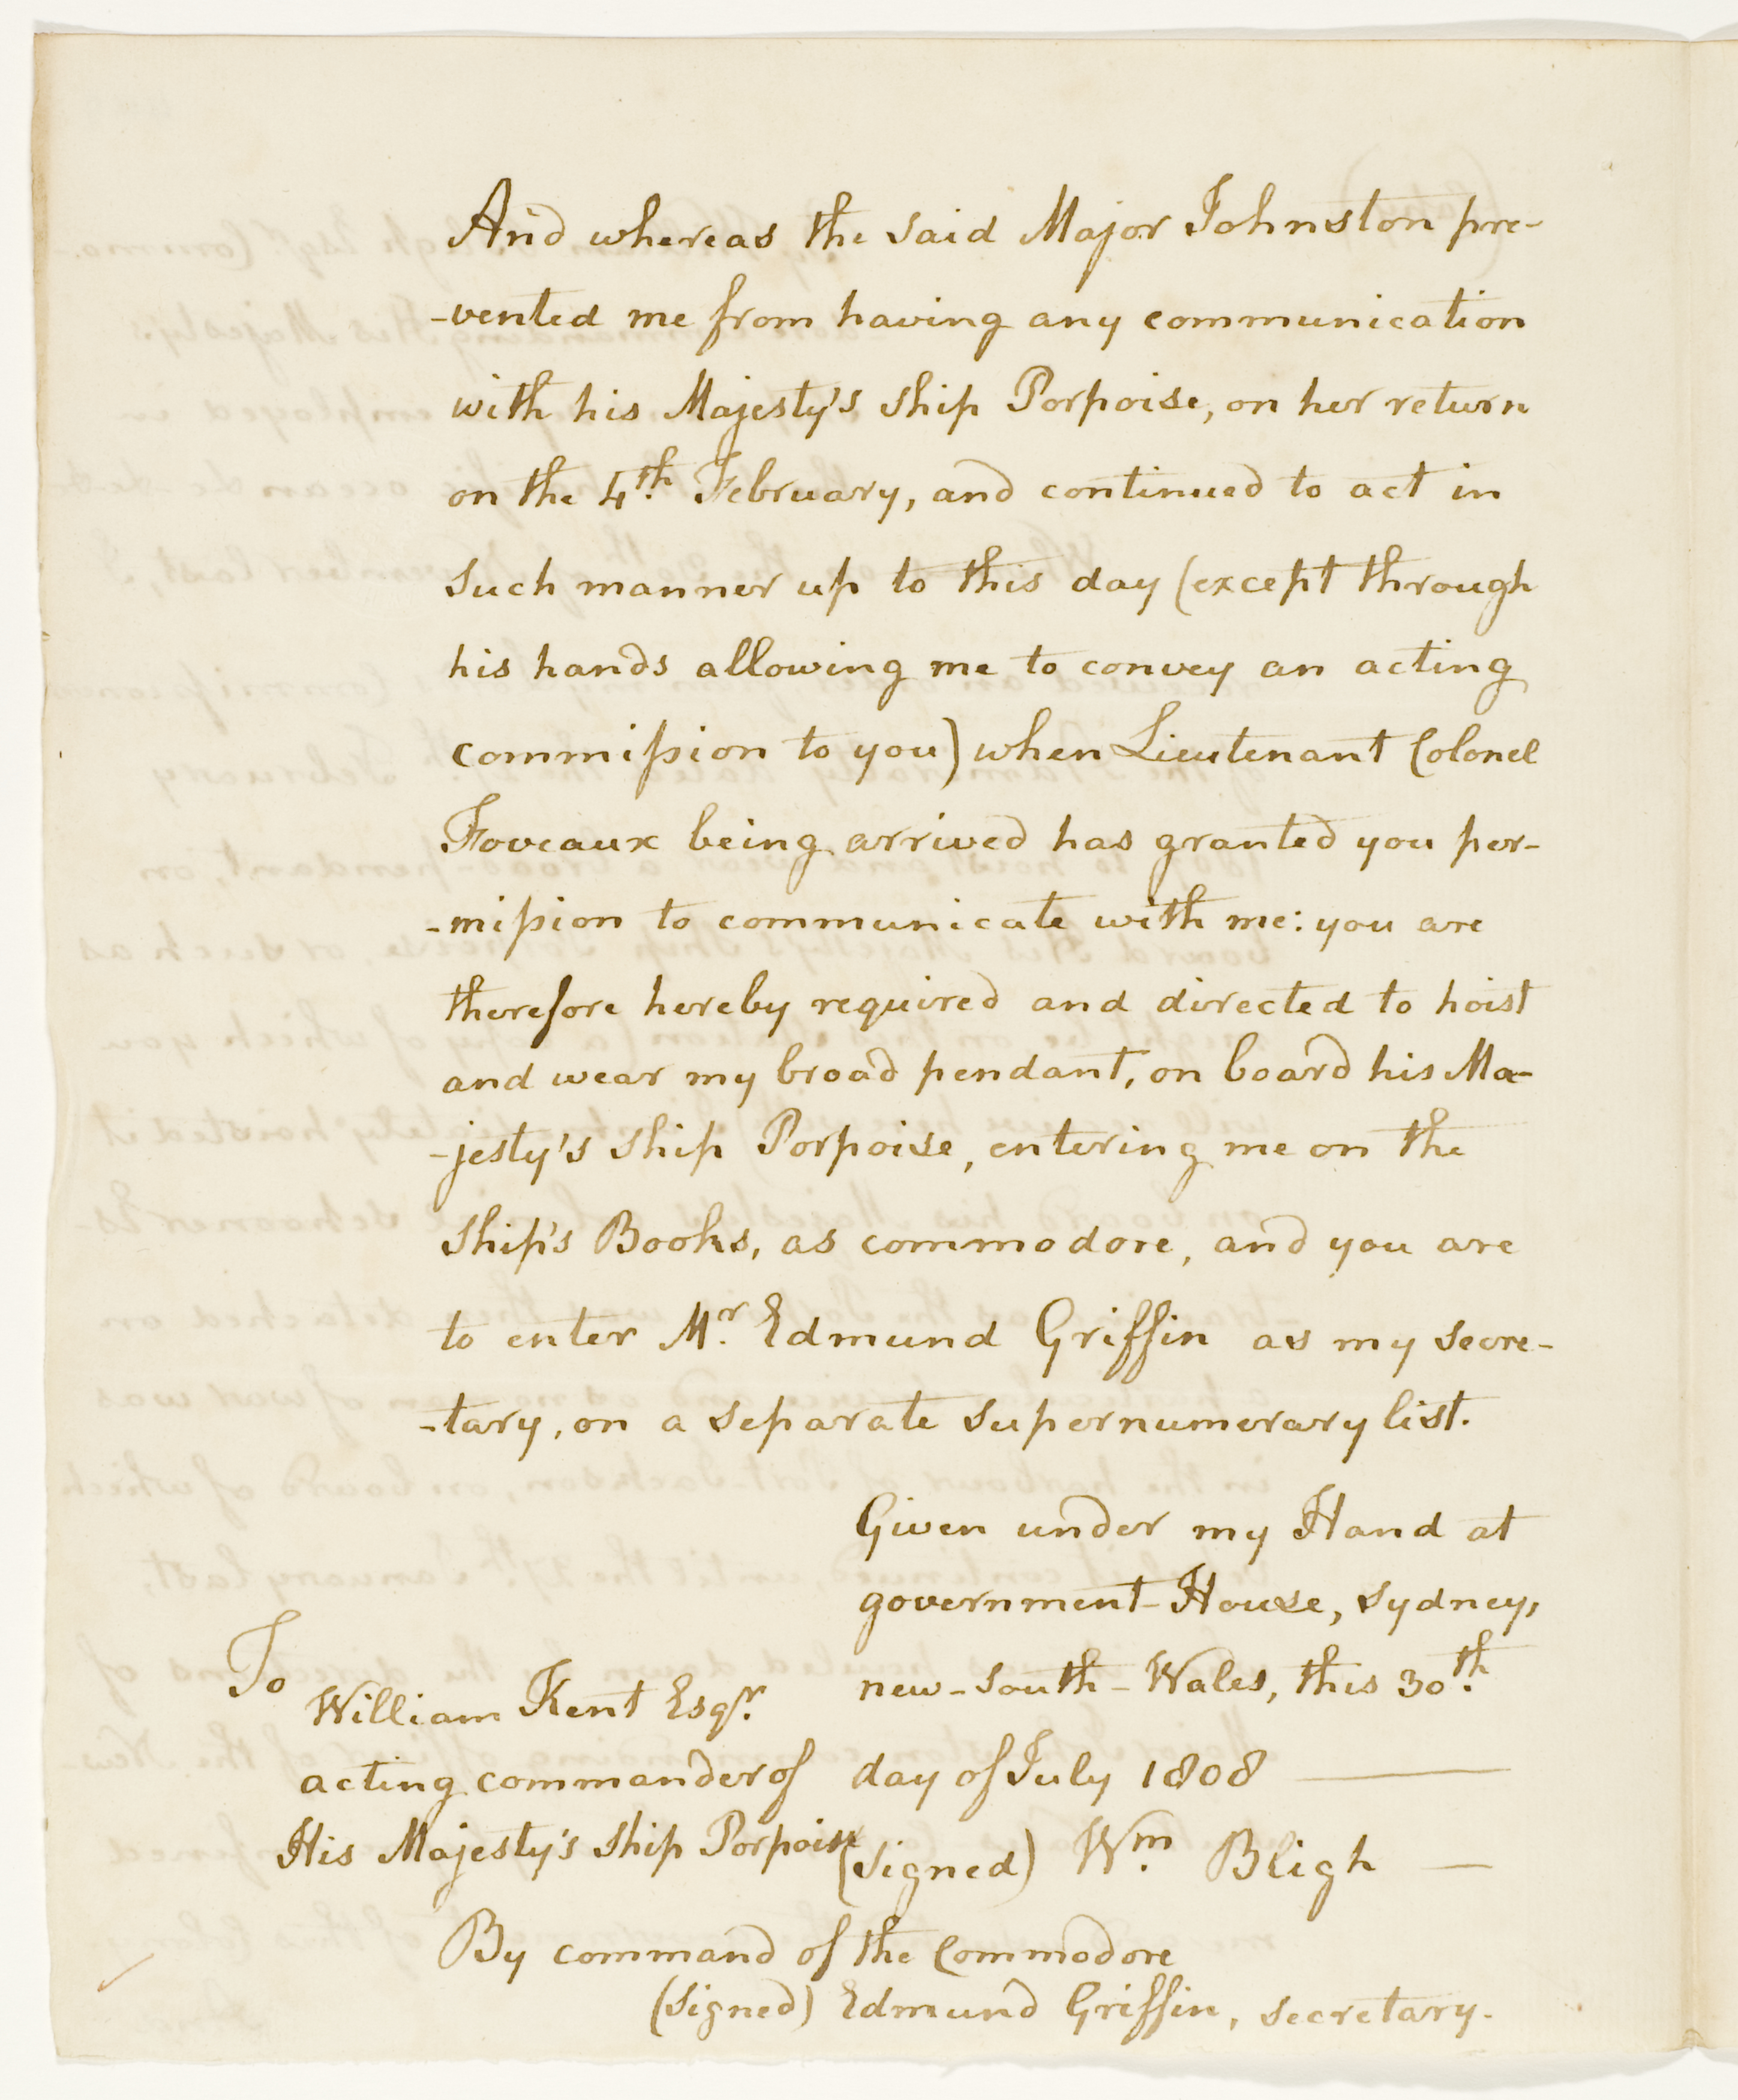 And whereas the said Major Johnston pre-
-vented me from having any communication
with his Majesty's ship Porpoise, on her return
on the 4th. February, and continued to act in
such manner up to this day (except through
his hands allowing me to convey an acting
commission to you) when Lieutenant Colonel
Foveaux being arrived has granted you per-
-mission to communicate with me: you are
therefore hereby required and directed to hoist
and wear my broad pendant, on board his Ma-
-jesty's ship Porpoise, entering me on the
ship's Books, as commodore, and you are
to enter Mr. Edmund Griffin as my secre-
-tary, on a separate supernumerary list.
Given under my Hand at
government-House, Sydney,
new-South-Wales, this 30th.
day of July 1808
(signed) Wm. Bligh
To
William Kent Esqr.
acting commander of
His Majesty's ship Porpoise
By command of the Commodore
(signed) Edmund Griffin, secretary.